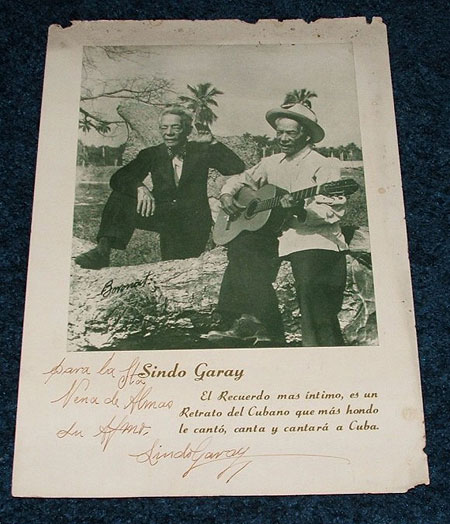 Bononat
Sindo Garay
El Recuerdo mas íntimo, es un
Retrato del Cubano que más hondo
le cantó, canta y cantará a Cuba.
para la Sta
Nena de Almas
su Afmo.
Sindo Garay